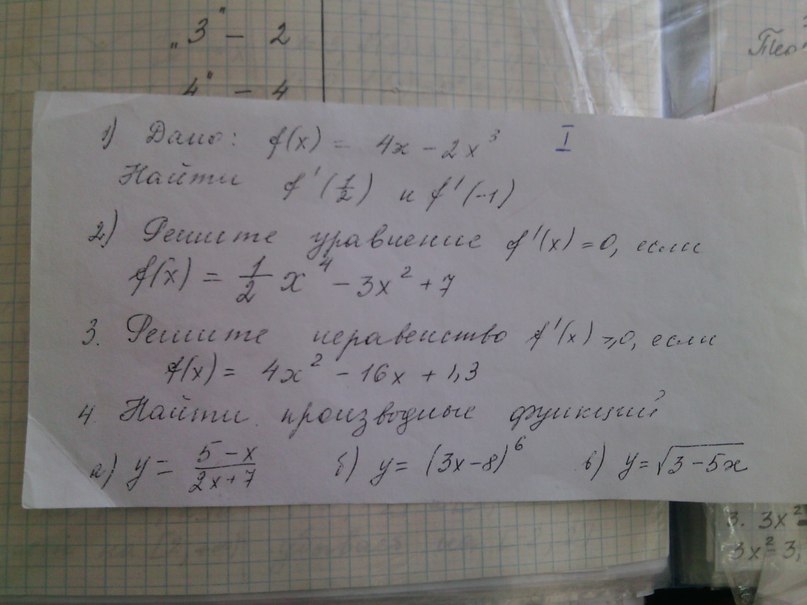 "3" - 2
"4" - 4
1) Дано: f(x) = 4x - 2x³ I
Найти f'(1/2) и f'(-1)
2) Решите уравнение f'(x) = 0, если
f(x) = 1/2 x⁴ - 3x² + 7
3. Решите неравенство f'(x) ≥ 0, если
f(x) = 4x² - 16x + 1,3
4 Найти производные функций
а) y = (5-x)/(2x+7) б) y = (3x-8)⁶ в) y = √(3-5x)
3. 3x² =
3x² - 3,